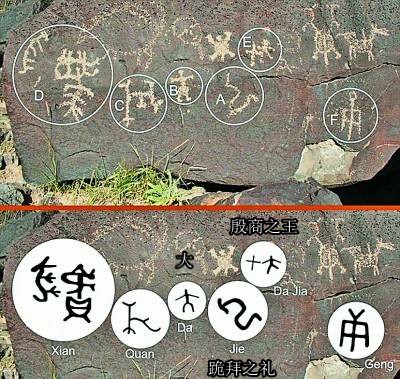 E
D
C
B
A
F
殷商之王
大
Da Jia
Da
Xian
Quan
Jie
Geng
跪拜之礼